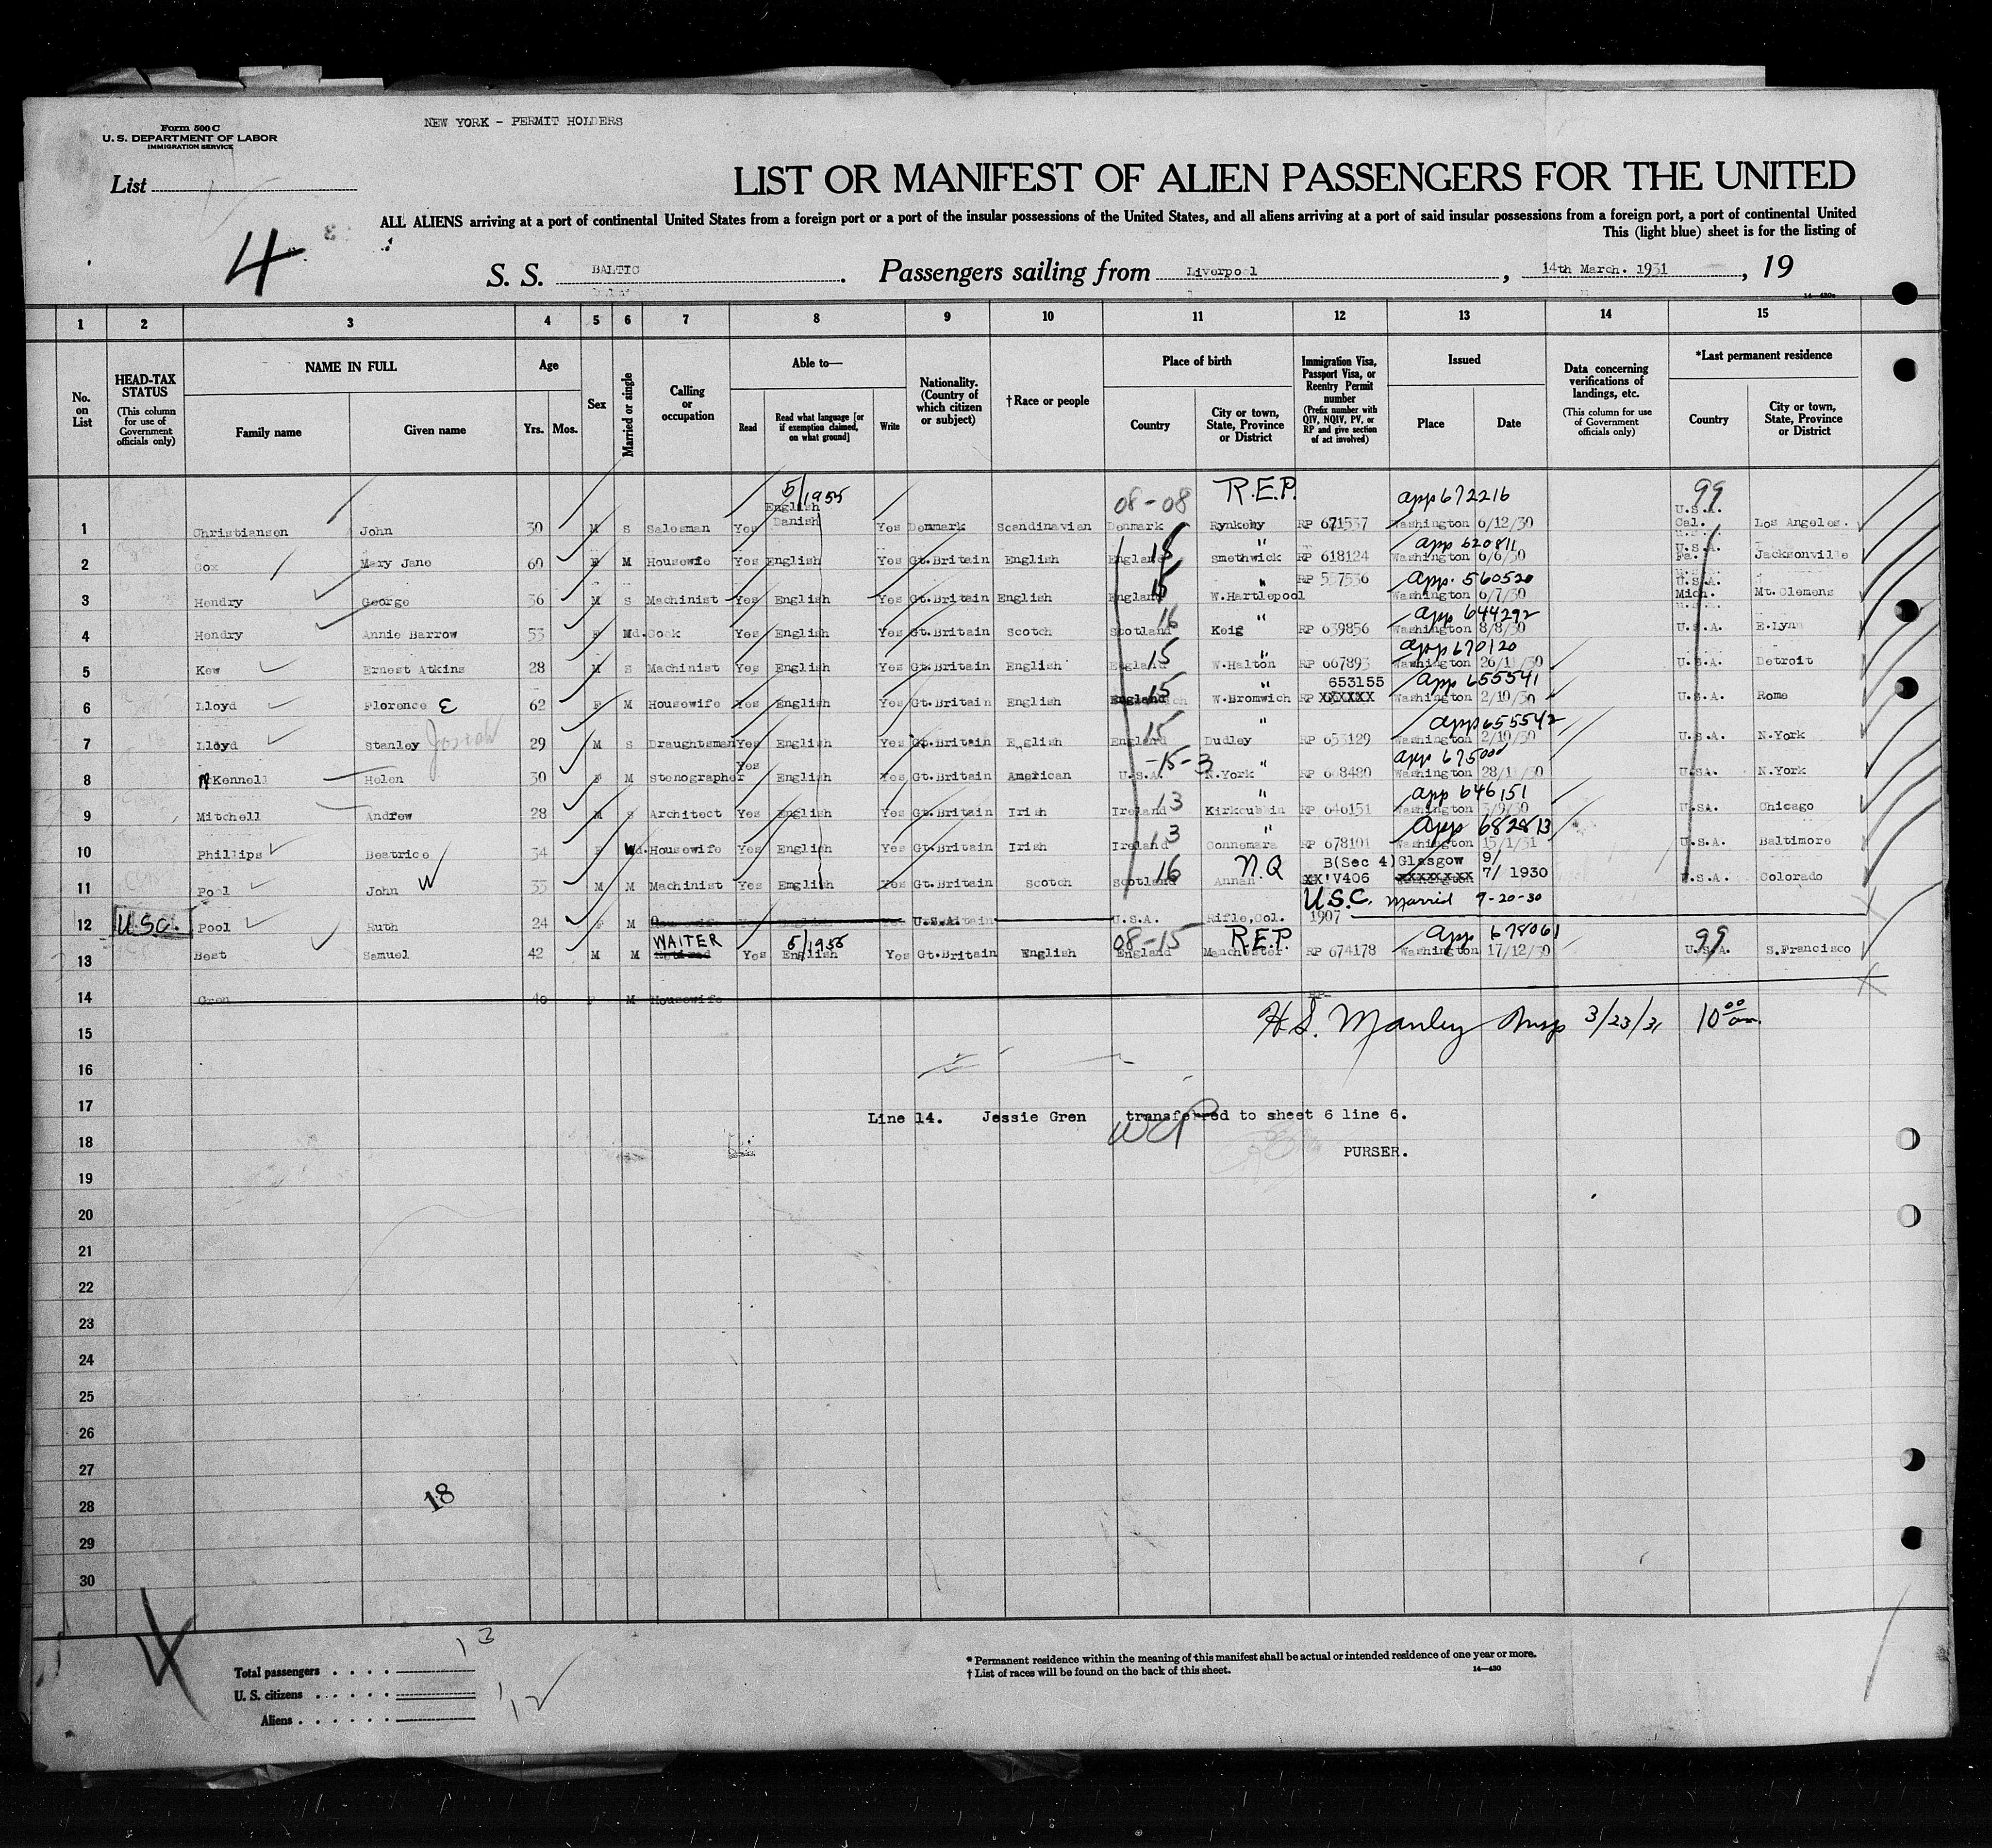 NEW YORK - PERMIT HOLDERS
Form 500 C
U. S. DEPARTMENT OF LABOR
IMMIGRATION SERVICE
List
4
LIST OR MANIFEST OF ALIEN PASSENGERS FOR THE UNITED
ALL ALIENS arriving at a port of continental United States from a foreign port or a port of the insular possessions of the United States, and all aliens arriving at a port of said insular possessions from a foreign port, a port of continental United
This (light blue) sheet is for the listing of
S. S. BALTIC. Passengers sailing from Liverpool, 14th March. 1931, 19
14—430c
1 2 3 4 5 6 7 8 9 10 11 12 13 14 15
No. on List
HEAD-TAX STATUS (This column for use of Government officials only)
NAME IN FULL Family name Given name
Age Yrs. Mos.
Sex
Married or single
Calling or occupation
Able to— Read Read what language [or if exemption claimed, on what ground] Write
Nationality. (Country of which citizen or subject)
†Race or people
Place of birth Country City or town, State, Province or District
Immigration Visa, Passport Visa, or Reentry Permit number (Prefix number with QIV, NQIV, PV, or RP and give section of act involved)
Issued Place Date
Data concerning verifications of landings, etc. (This column for use of Government officials only)
*Last permanent residence Country City or town, State, Province or District
5/1955 08-08 R.E.P. app 672216 99
1 Christiansen John 30 M S Salesman Yes English Danish Yes Denmark Scandinavian Denmark Rynkeby RP 671537 Washington 6/12/30 U.S.A. Cal. Los Angeles.
15 " app 620811
2 Cox Mary Jane 60 F M Housewife Yes English Yes Gt.Britain English England Smethwick RP 618124 Washington 6/6/30 U.S.A. Pa. Jacksonville
15 " RP 557556 app. 560520
3 Hendry George 36 M S Machinist Yes English Yes Gt.Britain English England W.Hartlepool Washington 6/7/30 U.S.A. Mich. Mt. Clemens
16 " app 644292
4 Hendry Annie Barrow 53 F Md. Cook Yes English Yes Gt.Britain Scotch Scotland Keig RP 639856 Washington 8/8/30 U.S.A. E.Lynn
15 " app 670120
5 Kew Ernest Atkins 28 M S Machinist Yes English Yes Gt.Britain English England W.Halton RP 667893 Washington 26/11/30 U.S.A. Detroit
15 " 653155 app 655541
6 Lloyd Florence E 62 F M Housewife Yes English Yes Gt.Britain English England W.Bromwich RP XXXXXX Washington 2/10/30 U.S.A. Rome
15 " app 655542
7 Lloyd Stanley Josiah 29 M S Draughtsman Yes English Yes Gt.Britain English England Dudley RP 653129 Washington 2/10/30 U.S.A. N.York
-15-3 " app 675000
8 McKennell Helen 30 F M Stenographer Yes English Yes Gt.Britain American U.S.A. N.York Washington U.S.A. N.York
13 " app 646151
9 Mitchell Andrew 28 M S Architect Yes English Yes Gt.Britain Irish Ireland RP 646151 Washington 3/9/30 U.S.A. Chicago
13 " app 682813
10 Phillips Beatrice 34 F Wd. Housewife Yes English Yes Gt.Britain Irish Ireland Connemara RP 678101 Washington 15/1/31 U.S.A. Baltimore
16 N.Q B(Sec 4) Glasgow 9/
11 Pool John W 33 M M Machinist Yes English Yes Gt.Britain Scotch Scotland Annan XX'V406 XXXXXXXX 7/ 1930 U.S.A. Colorado
U.S.C. Married 9-20-30
12 U.S.C. Pool Ruth 24 F M Housewife U.S.A. U.S.A. Rifle,Col. 1907
WAITER 5/1955 08-15 R.E.P. app 678061 99
13 Best Samuel 42 M M Retired Yes English Yes Gt.Britain English England Manchester RP 674178 Washington 17/12/30 U.S.A. S.Francisco
14 Gren 40 F M Housewife RP
15 H.S. Manley Insp 3/23/31 10 00 am.
16
17 Line 14. Jessie Gren transferred to sheet 6 line 6.
18 PURSER.
19
20
21
22
23
24
25
26
27
28 18
29
30
4
Total passengers . . . . 13
U. S. citizens . . . . . 1
Aliens . . . . . . 12
* Permanent residence within the meaning of this manifest shall be actual or intended residence of one year or more.
† List of races will be found on the back of this sheet.
14—430